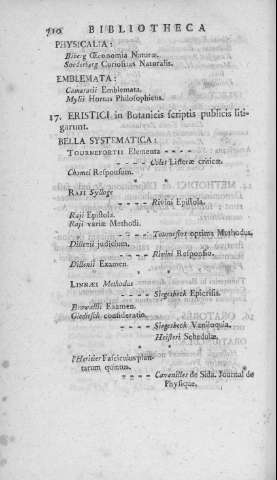 710 BIBLIOTHECA
PHYSICALIA:
Biberg Œconomia Naturæ.
Soederberg Curiositas Naturalis.
EMBLEMATA:
Camerarii Emblemata.
Mylii Hortus Philosophicus.
17. ERISTICI in Botanicis scriptis publicis liti-
garunt.
BELLA SYSTEMATICA:
TOURNEFORTII Elementa - - - -
- - - - Colet Litteræ criticæ.
Chomel Responsum.
RAJI Sylloge
- - - - Rivini Epistola.
Raji Epistola.
Raji variæ Methodi.
- - - - Tournefort optima Methodus.
Dillenii judicium.
- - - - Rivini Responsio.
Dillenii Examen.
LINNÆI Methodus
- - - - Siegesbeck Epicrisis.
Browallii Examen.
Gleditsch consideratio.
- - - - Siegesbeck Vaniloquia.
Heisteri Schedulæ.
l'Heritier Fasciculus plan-
tarum quintus.
- - - - Cavanilles de Sida. Journal de
Physique.